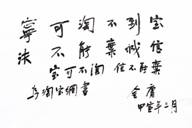 寧可淘不到宝
决不能棄誠信
宝可不淘 信不能棄
为淘宝網書 金庸
甲申年二月